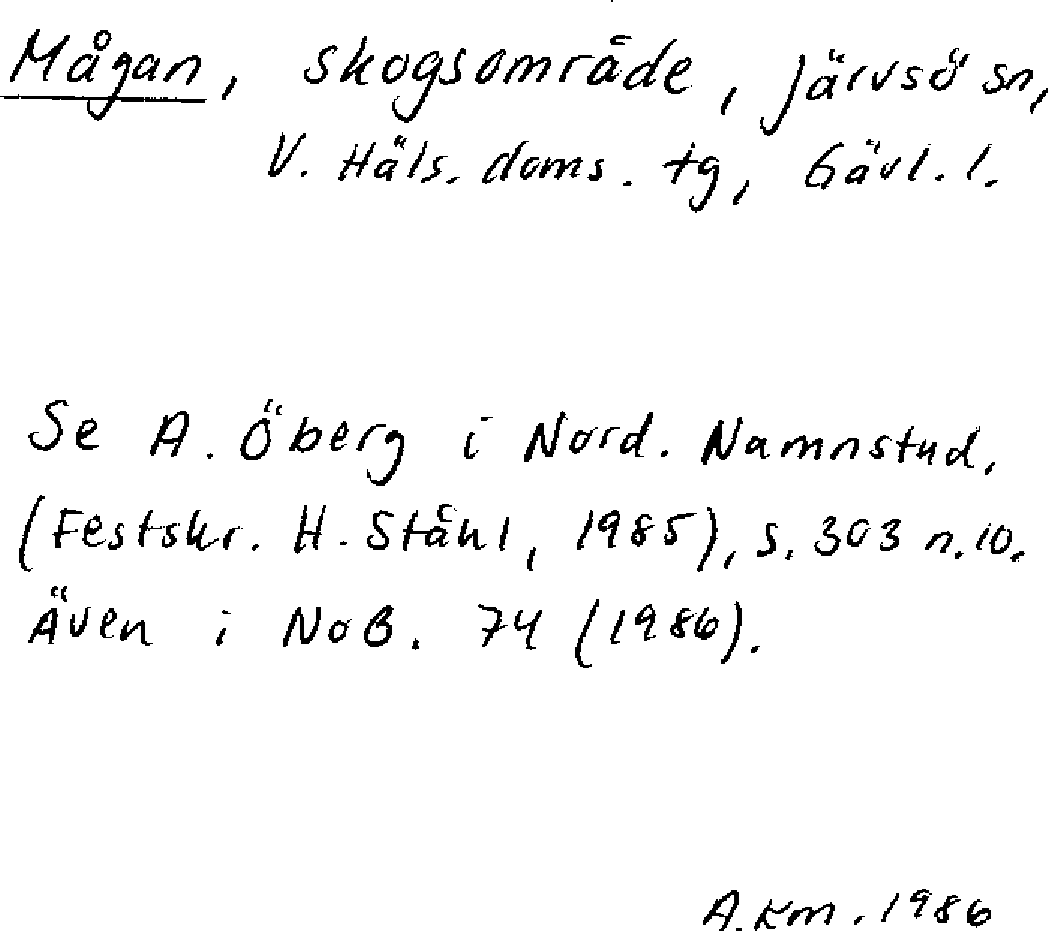 Mågan, skogsområde, Järvsö sn,
V. Häls. doms. tg, Gävl. l.
Se A. Öberg i Nord. Namnstud.
(Festskr. H. Ståhl, 1985), s. 303 n. 10.
Även i NoB. 74 (1986).
A. Km. 1986